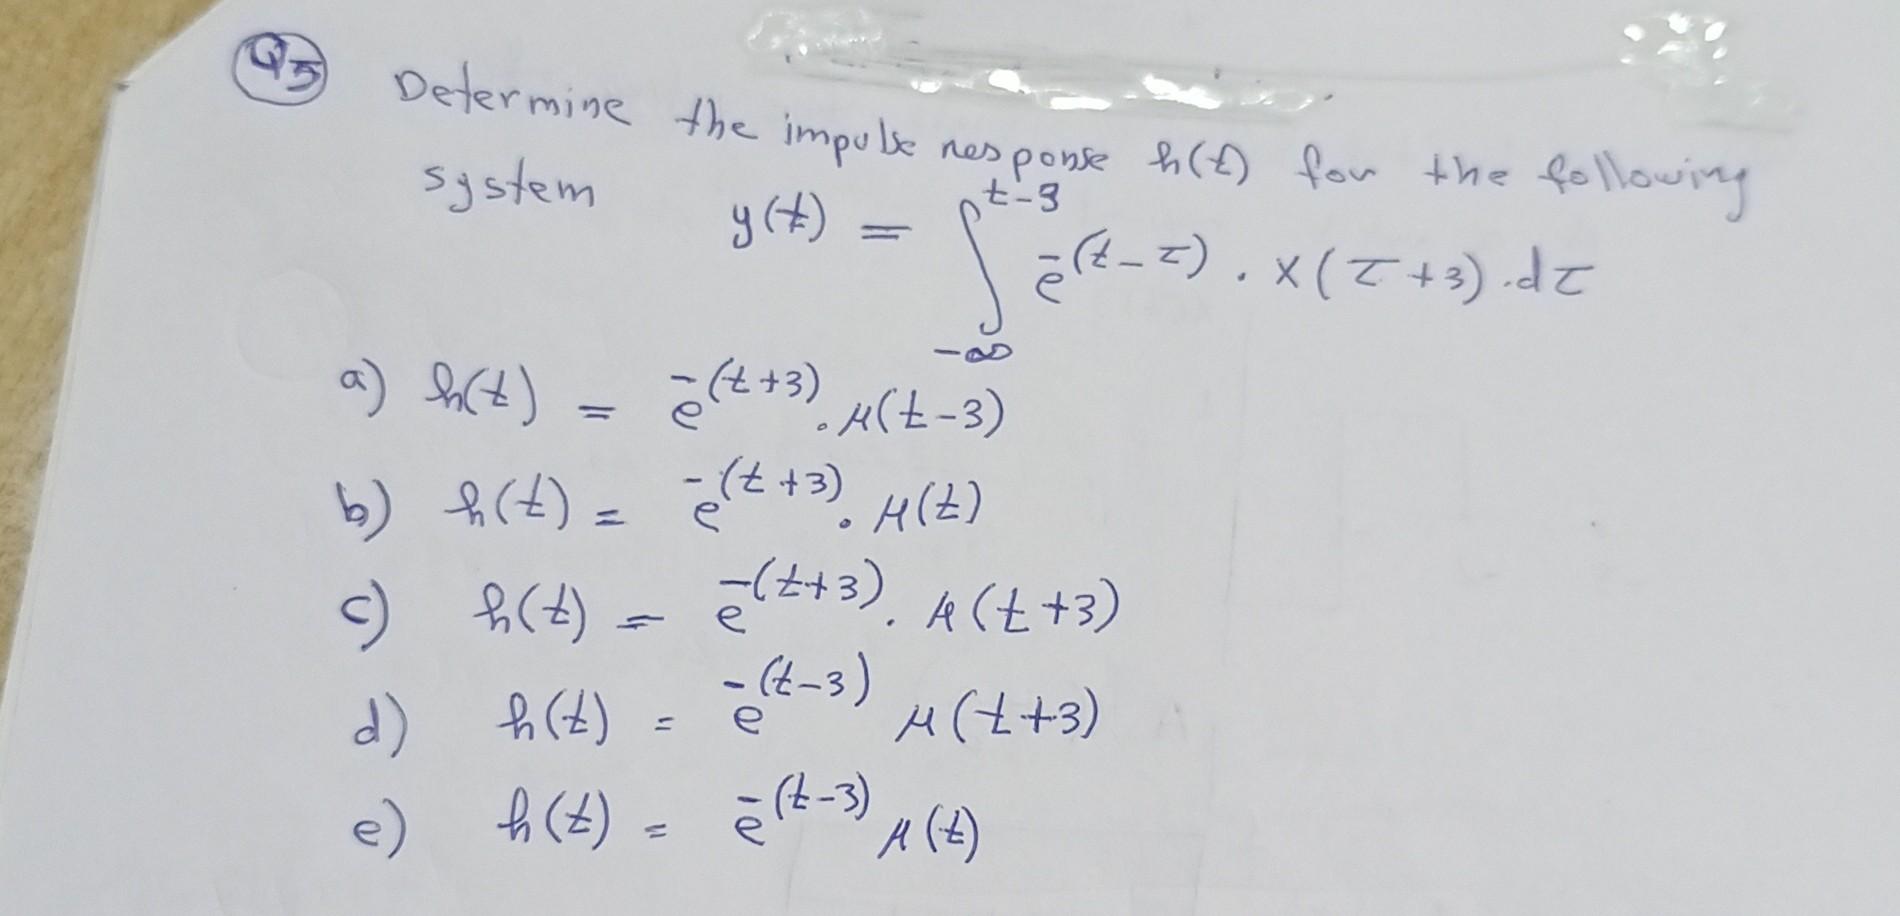 Q5 Determine the impulse response h(t) for the following
system y(t) = ∫_{-∞}^{t-3} e^{-(t-τ)} . x(τ+3) . dτ
a) h(t) = e^{-(t+3)} . μ(t-3)
b) h(t) = e^{-(t+3)} . μ(t)
c) h(t) = e^{-(t+3)} . μ(t+3)
d) h(t) = e^{-(t-3)} μ(t+3)
e) h(t) = e^{-(t-3)} μ(t)